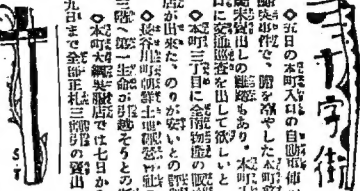 十字街
◇五日の本町入口の自動車
衝突事件で、膽を冷やした本町
出しの雜踏もあり、本町
に交通巡査を出して欲しいと
◇本町三丁目に金剛物産の販
店が出來た、のりが安いとの評
◇長谷川町朝鮮土地經營
三階へ第一生命が引越そうとの
◇本町大綱吳服店では七日か
九日まで全部正札三割引の賣出
S.T